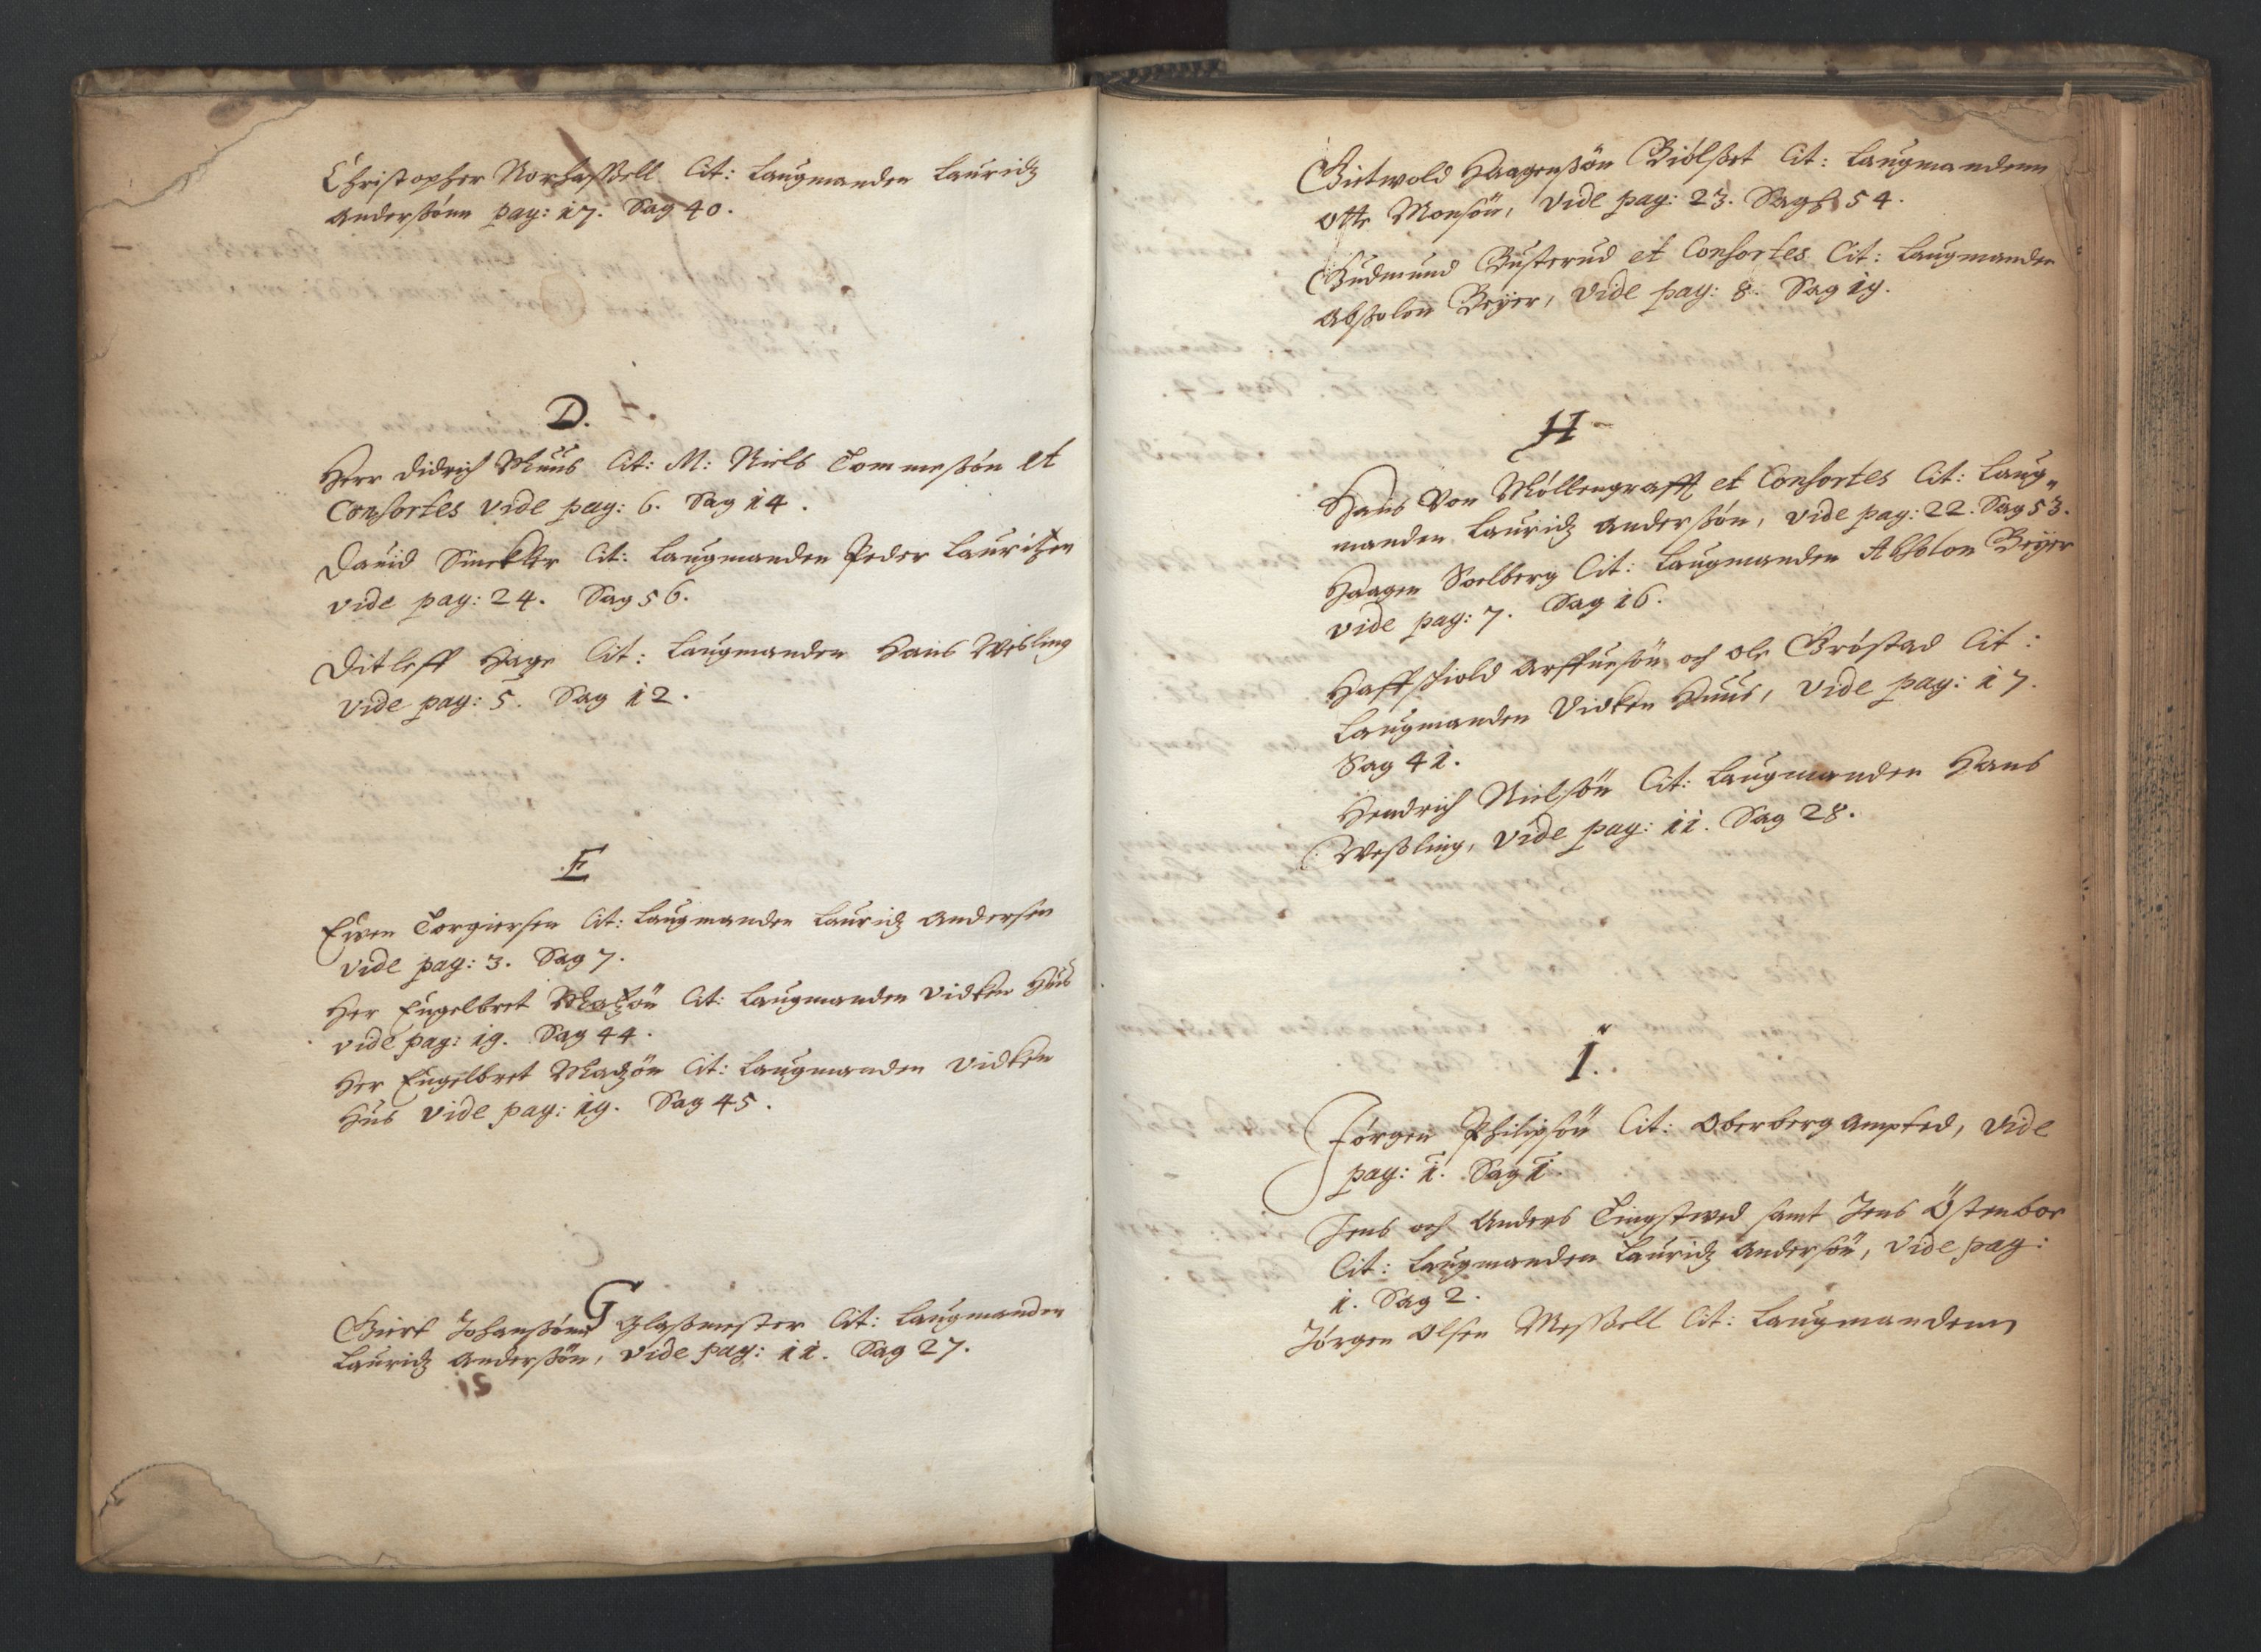 Christopher Norhassell Cit: Laugmanden Lauridz
Anderßönn pag: 17. Sag 40.
D.
Herr Didrich Muus Cit: M: Niels Tommeßön et
Consortes vide pag: 6. Sag 14.
David Sinckler Cit: Laugmanden Peder Lauritzen
vide pag: 24. Sag 56.
Ditleff Hage Cit: Laugmanden Hans Wesling
vide pag: 5. Sag 12.
E
Ewen Torgiersen Cit: Laugmanden Lauridz Andersen
vide pag: 3. Sag 7.
Her Engelbret Matzön Cit: Laugmanden Vidken Hus
vide pag: 19. Sag 44.
Her Engelbret Madzön Cit: Laugmanden Vidken
Hus vide pag: 19. Sag 45.
G
Giert Johanßönn Glaßmester Cit: Laugmanden
Lauridz Anderßön, vide pag: 11. Sag 27.
Haagenßön Giölset Cit: Laugmandenn
Otte Monsön, vide pag: 23. Sag 54.
Gudmund Gusterud et Consortes Cit: Laugmanden
Abßolon Beyer, vide pag: 8. Sag 19.
H
Hans Von Möllengrafft et Consortes Cit: Laug„
manden Lauridz Anderßön, vide pag: 22. Sag 53.
Haagen Soelberg Cit: Laugmanden Abßolon Beyer
vide pag: 7. Sag 16.
Haffskiold Arffuesön och Ole Gröstad Cit:
Laugmanden Vidken Huus, vide pag: 17.
Sag 41.
Hendrich Nielsön Cit: Laugmanden Hans
Weßling, vide pag: 11. Sag 28.
I.
Jörgen Philipsön Cit: Oberberg Ampted, vide
pag: 1. Sag 1
Jens och Anders Tingstwed samt Jens Östenbor
Cit: Laugmanden Lauridz Andersön, vide pag:
1. Sag 2.
Jörgen Olsen Meßell Cit: Laugmandenn